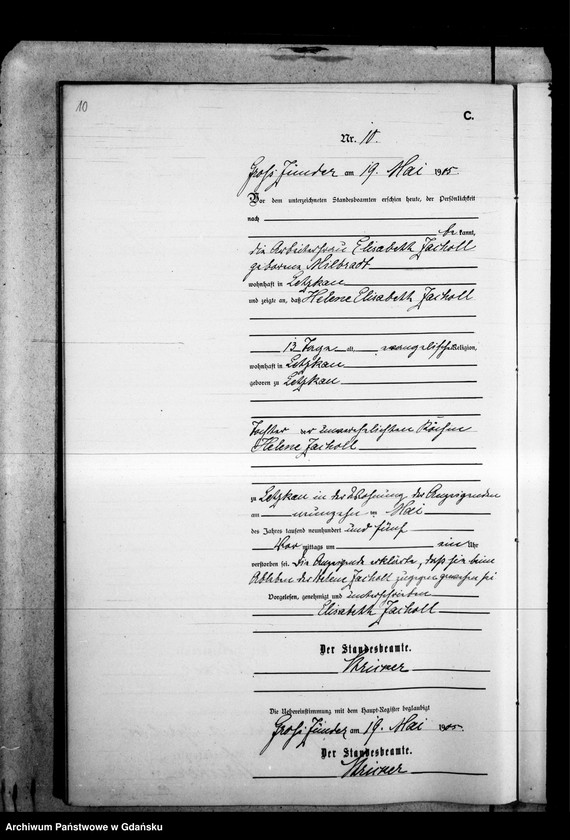 10
C.
Nr. 10.
Groß Zünder am 19. Mai 1905.
Vor dem unterzeichneten Standesbeamten erschien heute, der Persönlichkeit
nach
be kannt,
die Arbeiterfrau Elisabeth Zacholl
geborene Milbradt
wohnhaft in Letzkau
und zeigte an, daß Helene Elisabeth Zacholl
13 Tage alt evangelischer Religion,
wohnhaft in Letzkau
geboren zu Letzkau
Tochter der unverehelichten Köchin
Helene Zacholl
zu Letzkau in der Wohnung der Anzeigenden
am neunzehn ten Mai
des Jahres tausend neunhundert und fünf
Vor mittags um ein Uhr
verstorben sei. Die Anzeigende erklärte, daß sie beim
Ableben der Helene Zacholl zugegen gewesen sei
Vorgelesen, genehmigt und unterschrieben
Elisabeth Zacholl
Der Standesbeamte.
Die Uebereinstimmung mit dem Haupt-Register beglaubigt
Groß Zünder am 19. Mai 1905.
Der Standesbeamte.
Archiwum Państwowe w Gdańsku